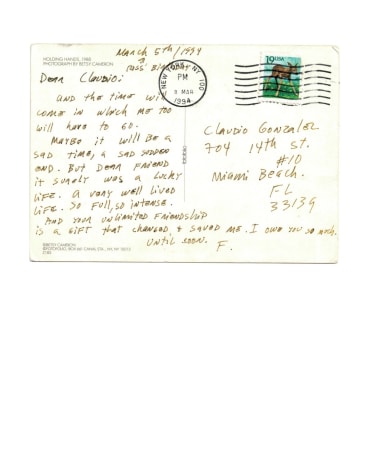 HOLDING HANDS, 1988
PHOTOGRAPH BY BETSY CAMERON
March 5th/1994
Dear Claudio:
And the time will
come in which me too
will have to go.
Maybe it will be a
sad time, a sad sudden
end. But dear friend
it surely was a lucky
life. A very well lived
life. So full, so intense.
And your unlimited friendship
is a gift that changed & saved me. I owe you so much.
Until soon. F.
©BETSY CAMERON
NEW YORK NY 100
PM
MAR
1994
19 USA
Claudio Gonzalez
704 14th St.
#10
Miami Beach.
FL
33139